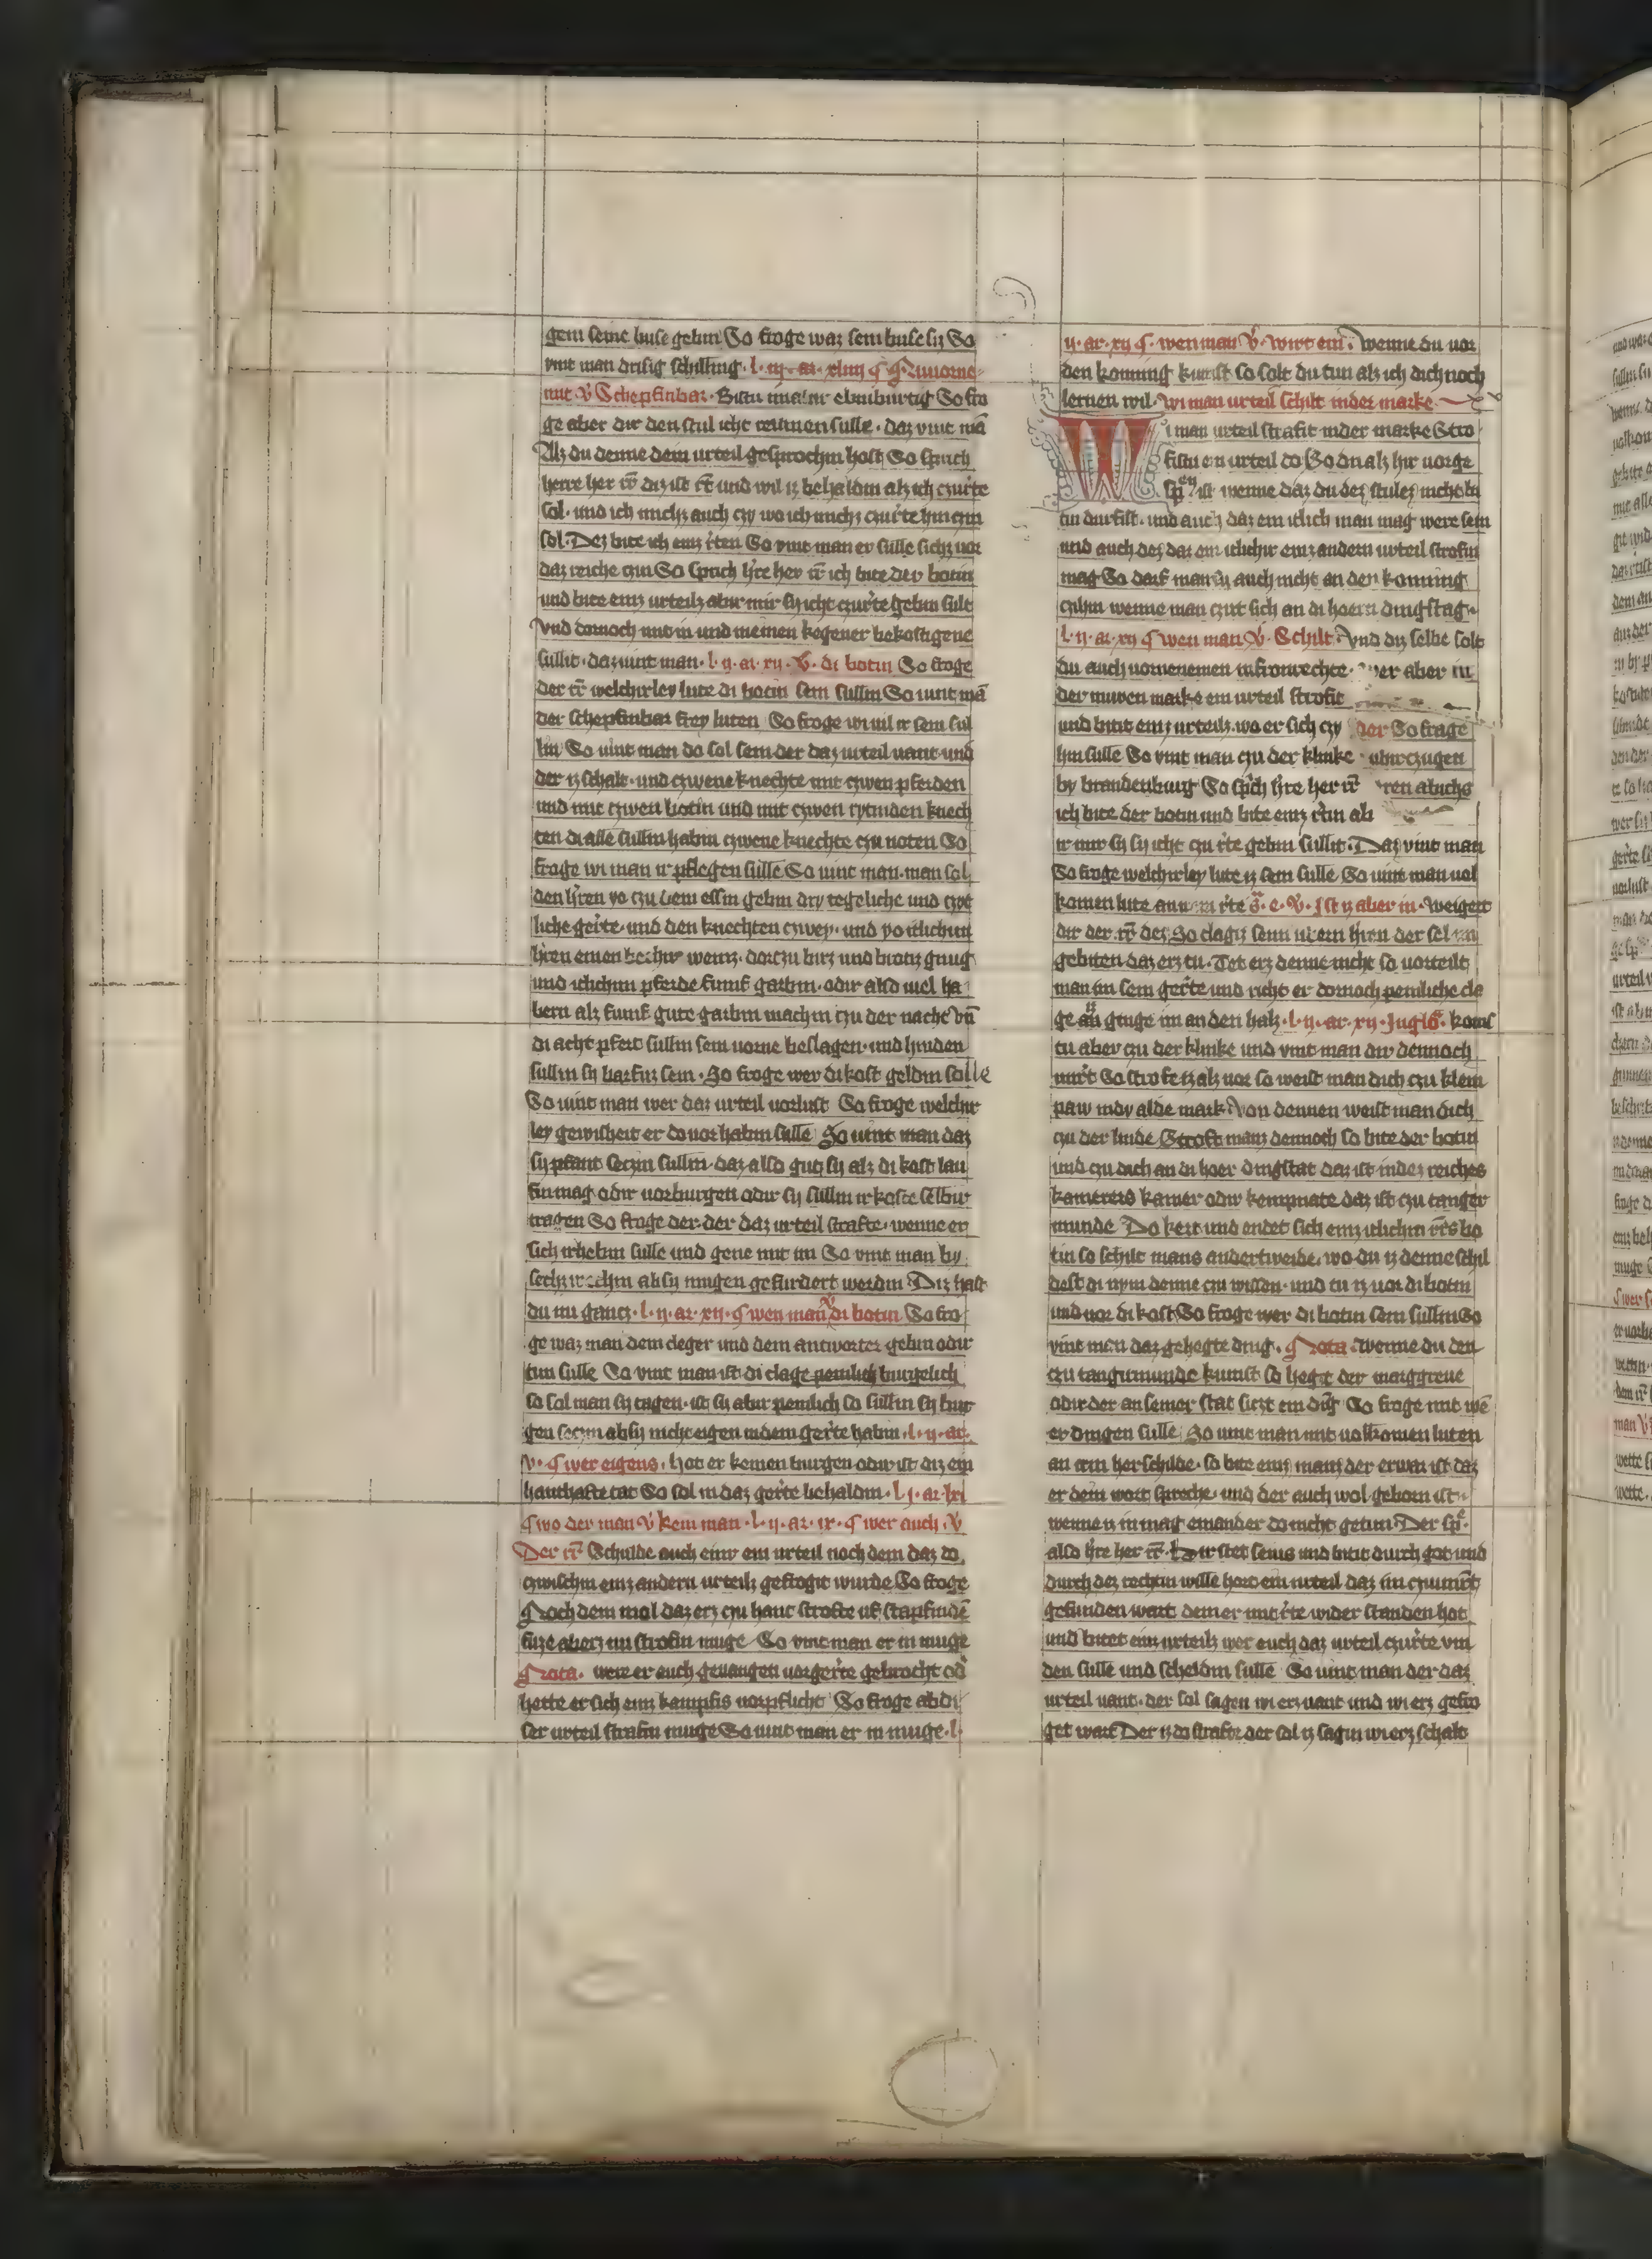 gem seine buse gebin So froge waz sein buse sy So
vint man drisig schilling · l · iij · ar · xliiij ¶
mit v̾ Schepfinbar · Bistu ebinburtig So fro
ge aber dir den stul icht reumen sulle · daz vint mā
Alz du denne dein urteil gesprochin host So sprich
herre her rr̄ diz ist rr̄ und wil iz behaldin alz ich czurte
sol · und ich michs auch czy wo ich michs czurte hin czin
sol · Dez bite ich einz rten So vint man er sulle sichs uor
daz reiche czin So sprich hre her rr̄ ich bite der botin
und bite einz urteilz abir mir sy icht czurte gebin sült
Vnd dornoch mit in und meinen kegener bekostigene
sullit · daz uint man · l · ij · ar · xij · v̾ · di botin So froge
der rr̄ welchirley lute di botin sein sullin So uint mā
der schepfinbar frey luten So froge wi uil ir sein sul
lin So uint man do sol sein der daz urteil uant und
der iz schalt · und czwene knechte mit czwen pferden
und mit czwen botin und mit czwen rytinden knech
ten di alle sullin habin czwene knechte czu noten So
froge wi man ir pflegen sülle So uint man · man sol
den hren yo czu dem essin gebin dry tegeliche und czyt
liche gerte · und den knechten czwey · und yo itlichim
hren einen bechir weinz · dorczu birz und brotiz gnug
und itlichim pferde fumf garbin · odir also uiel ha
bern alz fumf gute garbin machin czu der nacht vn̄
di acht pfert sullin sein uorne beslagen · und hinden
sullin sy barfuz sein · So froge wer di kost geldin solle
So uint man wer daz urteil uorlust So froge welchir
ley gewisheit er do uor habin sülle So uint man daz
sy pfant seczin sullin · daz also gut sy alz di kost lau
fin mag odir uorburgen odir sy sullin ir koste selbir
tragen So froge der · der daz urteil strafte · wenne er
sich irhebin sulle und gene mit im So vint man by
sechz wochin ab sy mugen gefurdert werdin Diz hast
du nu gancz · l · ij · ar · xij · ¶ wen man v̾ di botin So fro
ge waz man dem cleger und dem antworter gebin odir
tun sulle So vint man ist di clage burgelich
so sol man sy tagen · ist sy abir peinlich so sullin sy bur
gen seczin ab sy nicht eigen indem gerte habin · l · ij · ar ·
v · ¶ wer eigens · Hot er keinen burgen odir ist diz ein
hanthafte tat So sol in daz gerte behaldin · l · j · ar · lxj
¶ wo der man v̾ kein man · l · ij · ar · ix · ¶ wer auch · v̾
Der rr̄ Schulde auch einir ein urteil noch dem daz do
czwischin einz andern urteilz gefrogit wurde So froge
Noch dem mol daz erz czu hant strofte uf stapfindē
fuze ab erz nu strofin muge So vint man er in muge
Nota · were er auch geuangen uorgerte gebrocht od̾
hette er sich einz kampfis uorpflicht So froge ab di
ser urteil strafin muge So uint man er in muge · l ·
ij · ar · xij ¶ · wen man v̾ · wirt ein · Wenne du uor
den koning kumst so solt du tun alz ich dich noch
lernen wil · Wi man urteil schilt in der marke
Wi man urteil strafit in der marke Stro
fistu ein urteil do So du alz hir uorge
spͨn ist wenne daz du dez stulez nicht bi
tin durfist · und auch daz ein itlich man mag were sein
und auch dez daz ein itlichir einz andern urteil strofin
mag So darf man iz auch nicht an den koning
czihin wenne man czut sich an di hoern dingstag
l · ij · ar · xij ¶ wen man v̾ · Schilt · Vnd diz selbe solt
du auch uornemen in fronrechte · wer aber in
der nuwen marke ein urteil strofit
und bitit einz urteilz · wo er sich czy der So frage
hin sulle So vint man czu der klinke
by brandenburg So sprich hre her rr̄
ich bite der botin und bite einz rtin ab
ir mir sy sy icht czu rte gebin sullit · Daz vint man
So froge welchirley lute iz sein sulle So uint man uol
komen lute ann rte · Ist iz aber in · Weigert
dir der rr̄ dez · So clagiz seim hren der sol im
gebiten daz erz tu · Tet erz denne nicht so uorteilt
man im sein gerte und richt er dornoch peinliche cla
ge an ginge im an den halz · l · ij · ar · xij · kom̄s
tu aber czu der klinke und vint man dir dennoch
unrt So strofe iz alz uor so weist man dich czu klein
paw indy alde mark Von dennen weist man dich
czu der linde Stroft manz dennoch so bite der botin
und czu dich an di hoer dingstat daz ist in dez reiches
kamerers kamer odir kempnate daz ist czu tanger
munde Do kert und endet sich einz itlichim
tin so schilt mans andertweide · wo du iz denne schil
dest di nym denne czu wissen · und tu iz uor di botin
und uor di kost So froge wer di botin sein sullin So
vint man daz gehegte ding · Nota · Wenne du den
czu tangirmunde kumst so heget der marggreue
odir der an seiner stat siczt ein dīg So froge mit wē
er dingen sulle So uint man mit uolkomen luten
an irm herschilde · so bite einz manz der erwar ist daz
er dein wort spreche · und der auch wol geborn ist
wenne iz in mag einander do nicht getun · Der spͨ ·
also hre her rr̄ hir stet senis und bitit durch got und
durch dez rechtin wille hort ein urteil daz im czu unrt
gefunden wart dem er mit rte wider standen hot
und bitet einz urteilz wer euch daz urteil czurte vin
den sulle und scheldin sulle So uint man der daz
urteil uant · der sol sagen wi erz uant und wi erz gefro
get wart Der iz do strafte der sol iz sagin wi erz schalt